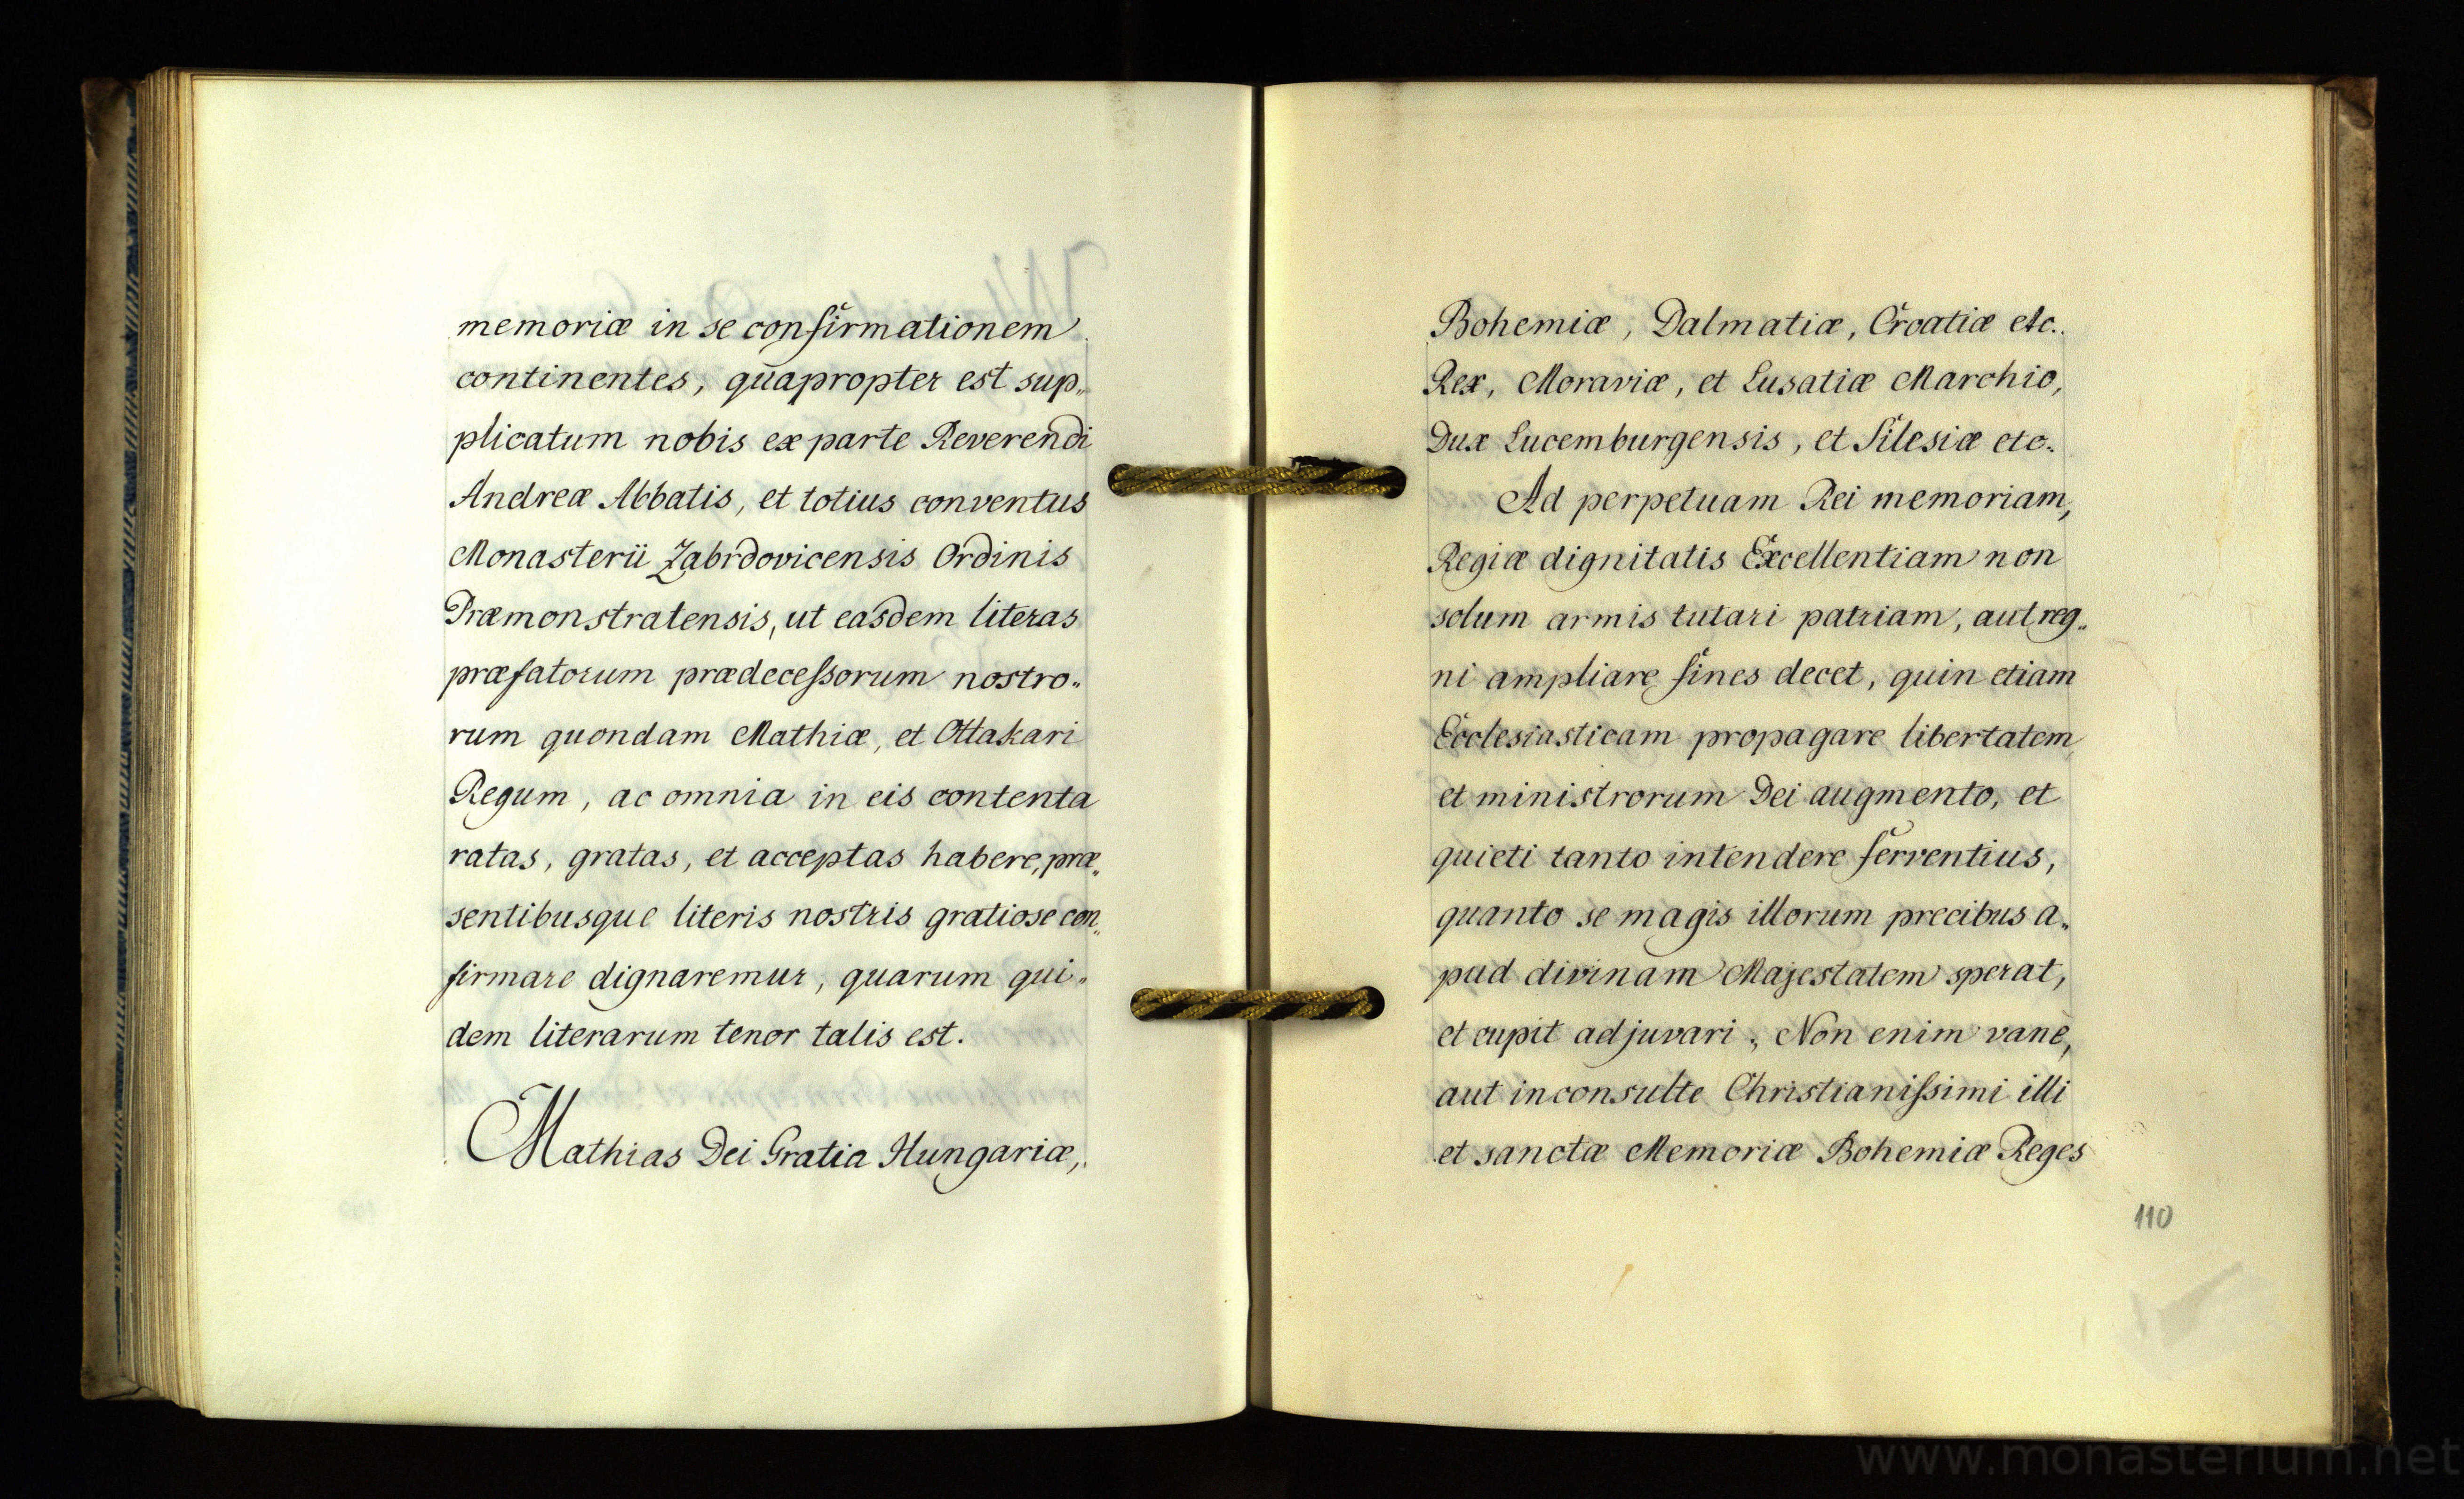 memoriæ in se confirmationem
continentes, quapropter est sup„
plicatum nobis ex parte Reverendi
Andreæ Abbatis, et totius conventus
Monasterii Zabrdovicensis Ordinis
Præmonstratensis, ut easdem literas
præfatorum prædecessorum nostro„
rum quondam Mathiæ, et Ottakari
Regum, ac omnia in eis contenta
ratas, gratas, et acceptas habere, præ„
sentibusque literis nostris gratiose con„
firmare dignaremur, quarum qui„
dem literarum tenor talis est.
Mathias Dei Gratia Hungariæ,
Bohemiæ, Dalmatiæ, Croatiæ etc.
Rex, Moraviæ, et Lusatiæ Marchio,
Dux Lucemburgensis, et Silesiæ etc.
Ad perpetuam Rei memoriam,
Regiæ dignitatis Excellentiam non
solum armis tutari patriam, aut reg„
ni ampliare fines decet, quin etiam
Ecclesiasticam propagare libertatem
et ministrorum Dei augmento, et
quieti tanto intendere ferventius,
quanto se magis illorum precibus a„
pud divinam Majestatem sperat,
et cupit adjuvari; Non enim vanè,
aut inconsulte Christianissimi illi
et sanctæ Memoriæ Bohemiæ Reges
110
www.monasterium.net